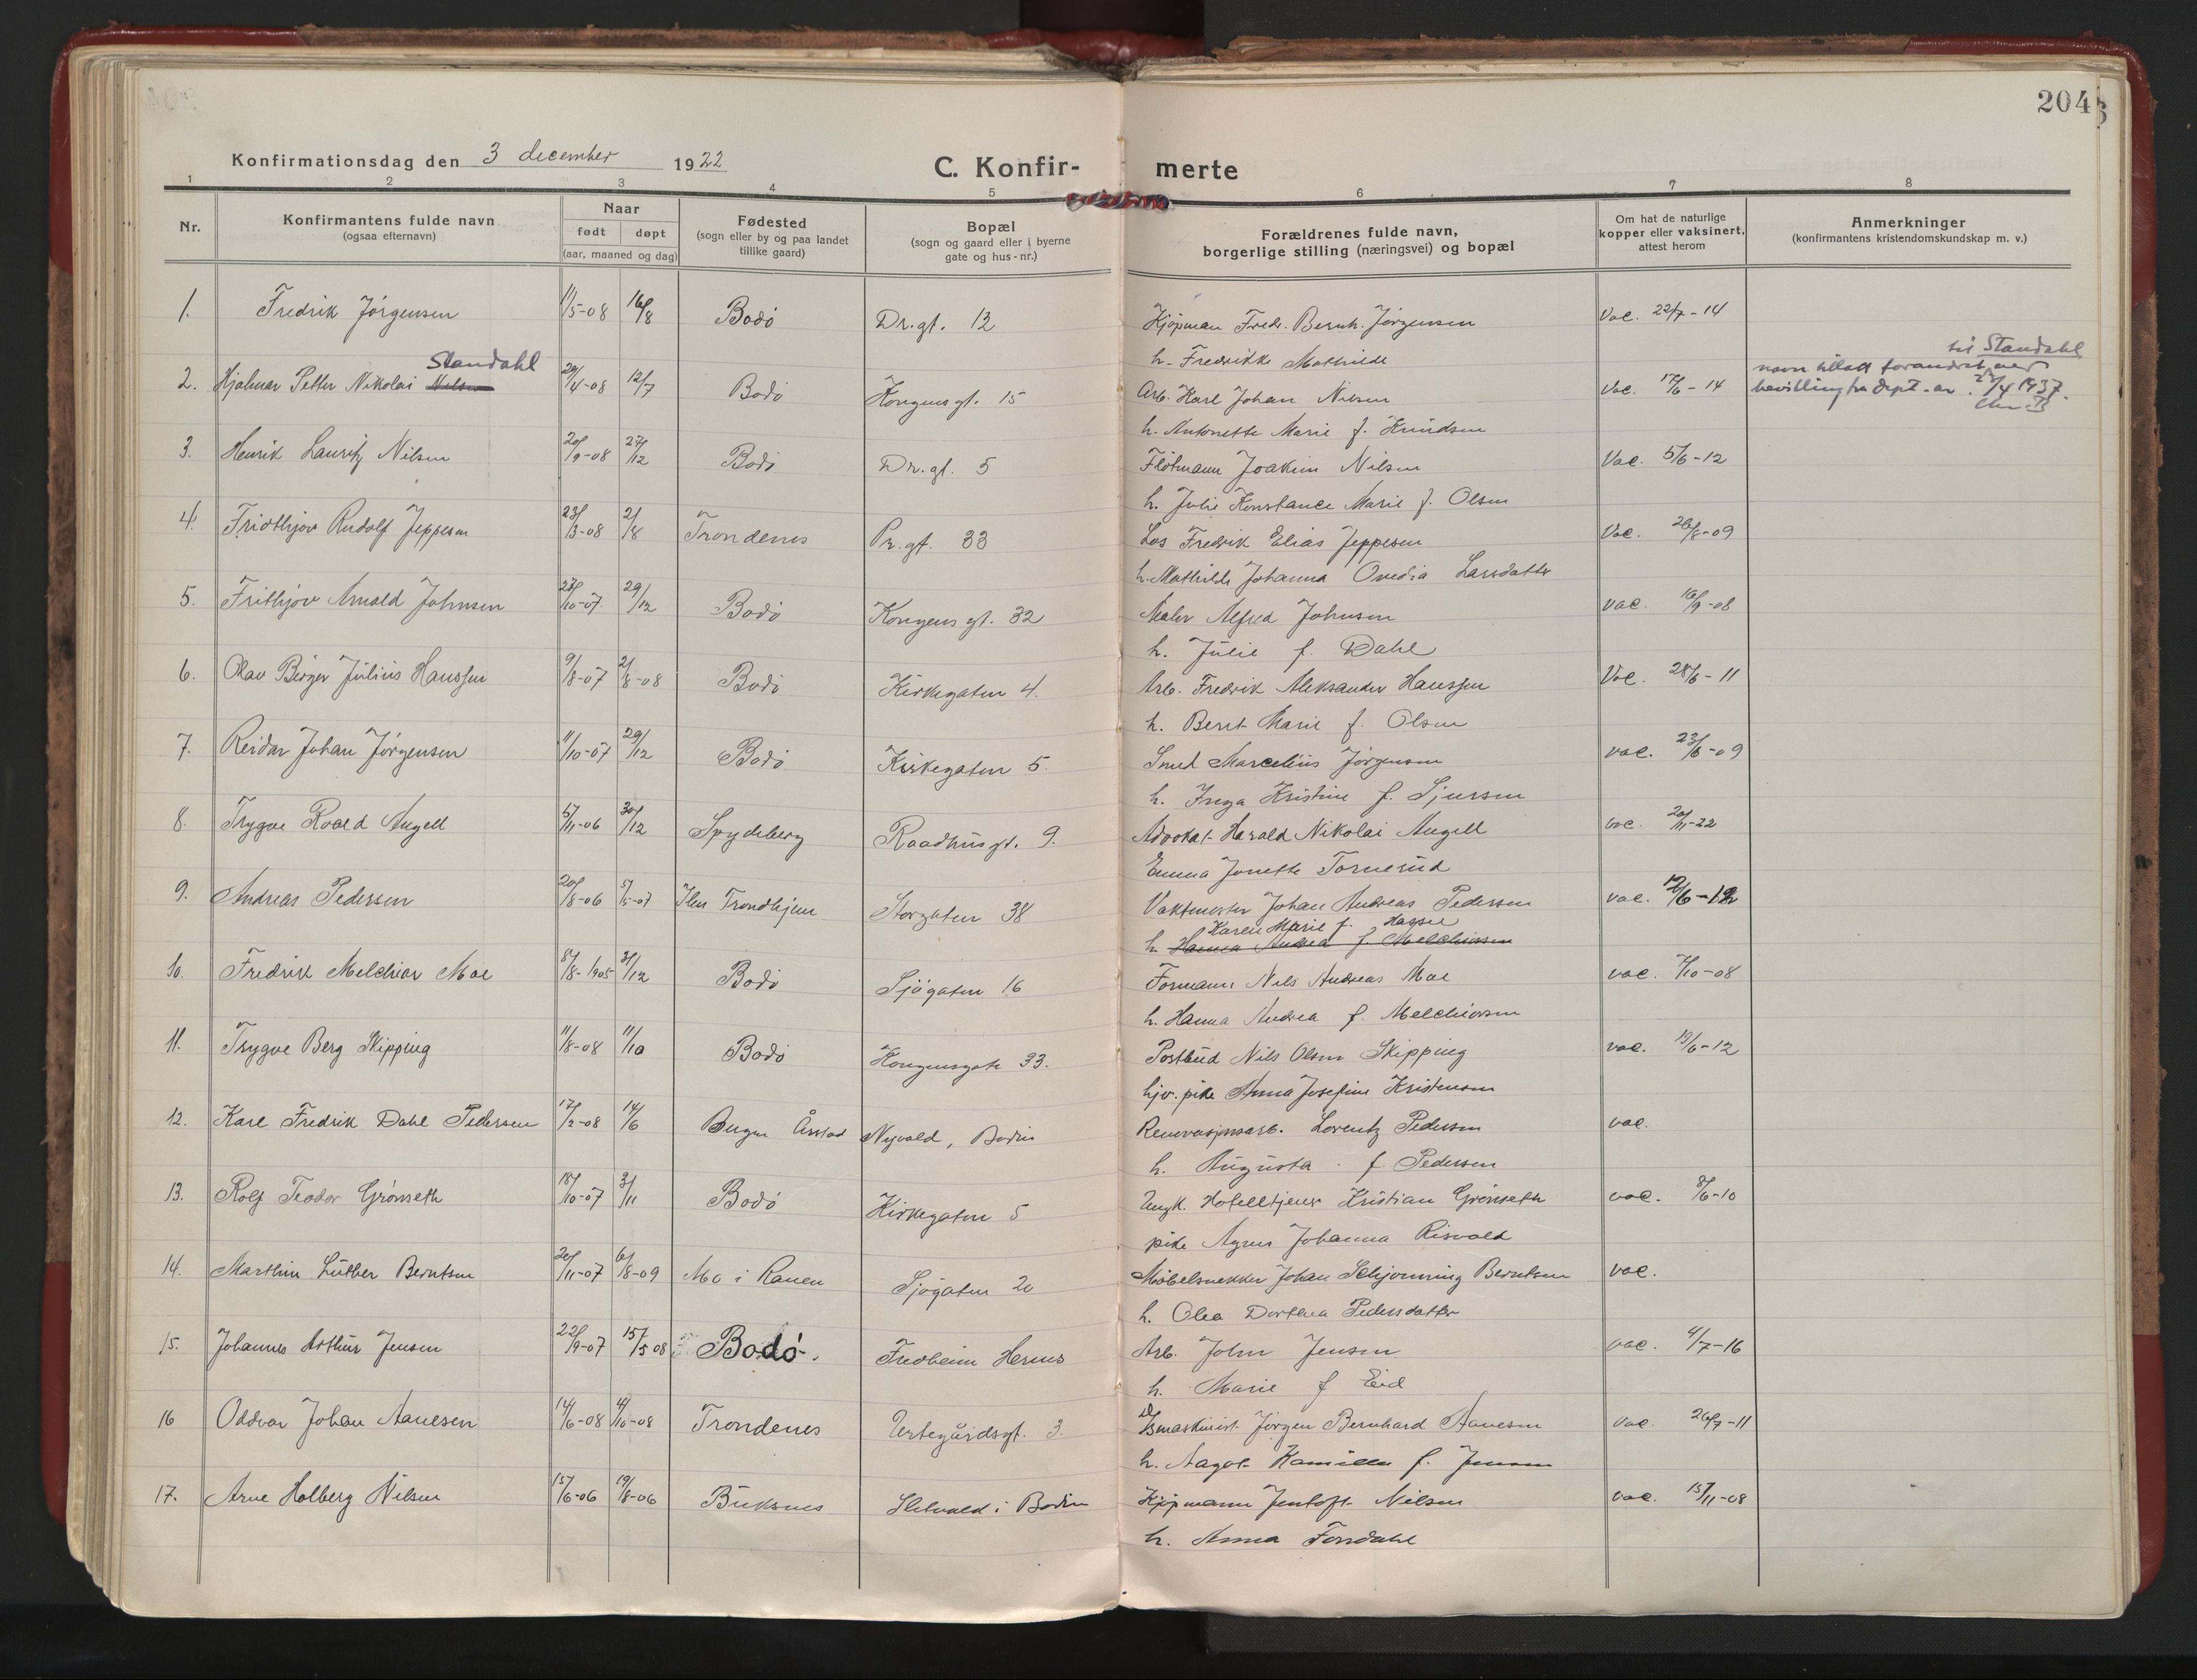 204
Konfirmationsdag den 3 december 1922
C. Konfir- merte
1 2 3 4 5 6 7 8
Nr.
Konfirmantens fulde navn
(ogsaa efternavn)
Naar
født døpt
(aar, maaned og dag)
Fødested
(sogn eller by og paa landet
tillike gaard)
Bopæl
(sogn og gaard eller i byerne
gate og hus-nr.)
Forældrenes fulde navn,
borgerlige stilling (næringsvei) og bopæl
Om hat de naturlige
kopper eller vaksinert,
attest herom
Anmerkninger
(konfirmantens kristendomskundskap m. v.)
1. Fredrik Jørgensen 11/5-08 16/8 Bodø Dr.gt. 12 Kjøpman Fredr. Bernh. Jørgensen Vac. 22/7-14
h. Fredrikke Mathilde
Standahl til Standahl
2. Hjalmar Petter Nikolai Nilsen 29/4-08 12/7 Bodø Kongensgt. 15 Arb. Karl Johan Nilsen Vac. 17/6-14 navn tillatt forandret ved
bevilling fra dept. av 22/4 1937.
h. Antonette Marie f. Knudsen
3. Henrik Lauritz Nilsen 20/9-08 27/12 Bodø Dr.gt. 5 Flötmann Joakim Nilsen Vac. 5/6-12
h. Julie Konstance Marie f. Olsen
4. Fridthjov Rudolf Jeppesen 23/3-08 2/8 Trondenes Pr.gt. 33 Los Fredrik Elias Jeppesen Vac. 26/8-09
h. Mathilde Johanna Ovedia Larsdatter
5. Frithjov Arnold Johnsen 28/10-07 29/12 Bodø Kongens gt. 32 Maler Alfred Johnsen vac. 16/9-08
h. Julie f. Dahl
6. Olav Birger Julius Hanssen 9/8-07 2/8-08 Bodø Kirkegaten 4. Arb. Fredrik Aleksander Hanssen Vac. 28/6-11
h. Beret Marie f. Olsen
7. Reidar Johan Jørgensen 11/10-07 29/12 Bodø Kirkegaten 5. Smed Marcelius Jørgensen vac. 23/6-09
h. Freya Kristine f. Sjursen
8. Trygve Roald Angell 5/11-06 30/12 Spydeberg Raadhusgt. 9. Advokat Harald Nikolai Angell vac. 20/11-22
Emma Jonette Tornerud
9. Andreas Pedersen 20/8-06 5/5-07 Ilen Trondhjem Storgaten 38 Vaktmester Johan Andreas Pedersen vac. 12/6-12
Karen Marie f. Hagsee
h. Hanna Andrea f. Melchiorsen
10. Fredrik Melchior Moe 8/8-1905 31/12 Bodø Sjøgaten 16 Formann Nils Andreas Moe vac. 7/10-08
h. Hanna Andrea f. Melchiorsen
11. Trygve Berg Skipping 11/8-08 11/10 Bodø Kongensgate 33. Postbud Nils Olsen Skipping vac. 13/6-12
hjv. pike Anna Josefine Kristensen
12. Karl Fredrik Dahl Pedersen 17/2-08 14/6 Bergen Årstad Nyvold, Bodin Renovasjonsarb. Lorentz Pedersen vac.
h. Augusta f. Pedersen
13. Rolf Teodor Grønseth 18/10-07 3/11 Bodø Kirkegaten 5 Ungk. Hotelltjener Kristian Grønseth vac. 8/6-10
pike Agnes Johanna Risvold
14. Marthin Luther Berntsen 20/11-07 6/8-09 Mo i Ranen Sjøgaten 20 Møbelsnekker Johan Schjønning Berntsen vac.
h. Olea Dorthea Pedersdatter
15. Johannes Arthur Jensen 22/9-07 15/5 08 Bodø. Fredheim Hernes Arb. John Jensen vac. 4/7-16
h. Marie f Eid
16 Oddvar Johan Aanesen 14/6-08 4/10-08 Trondenes Urtegårdsgt. 3. Jørgen Bernhard Aanesen vac. 26/7-11
h. Aagot Kamilla f. Jensen
17. Arne Holberg Nilsen 15/6-06 19/8-06 Buksnes Sletvold i Bodin Kjøpmann Jentoft Nilsen vac. 15/11-08
h. Anna Forsdahl